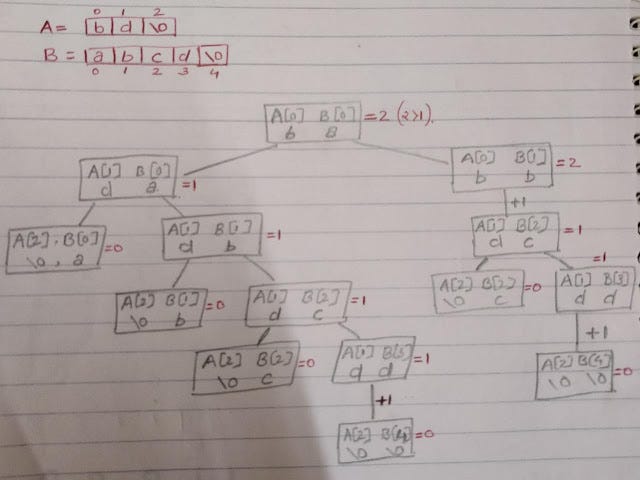 0 1 2
A = b d \0
B = a b c d \0
0 1 2 3 4
A[0] B[0] = 2 (2>1).
b a
A[1] B[0] = 1
d a
A[0] B[1] = 2
b b
+1
A[2], B[0] = 0
\0, a
A[1] B[1] = 1
d b
A[1] B[2] = 1
d c
A[2] B[1] = 0
\0 b
A[1] B[2] = 1
d c
A[2] B[2] = 0
\0 c
= 1
A[1] B[3]
d d
A[2] B[2] = 0
\0 c
A[1] B[3] = 1
d d
+1
A[2] B[4] = 0
\0 \0
+1
A[2] B[4] = 0
\0 \0